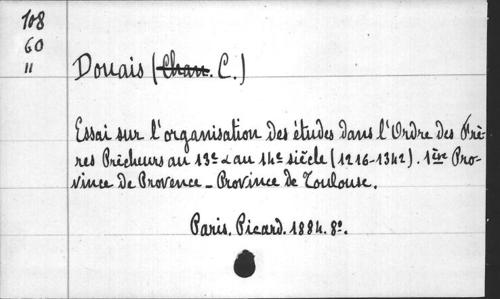 108
60
11
Douais (Chan. C.)
Essai sur l'organisation des études dans l'Ordre des Frè-
res Prêcheurs au 13e & au 14e siècle (1216-1342). 1ère Pro-
vince de Provence - Province de Toulouse.
Paris. Picard. 1884. 8o.